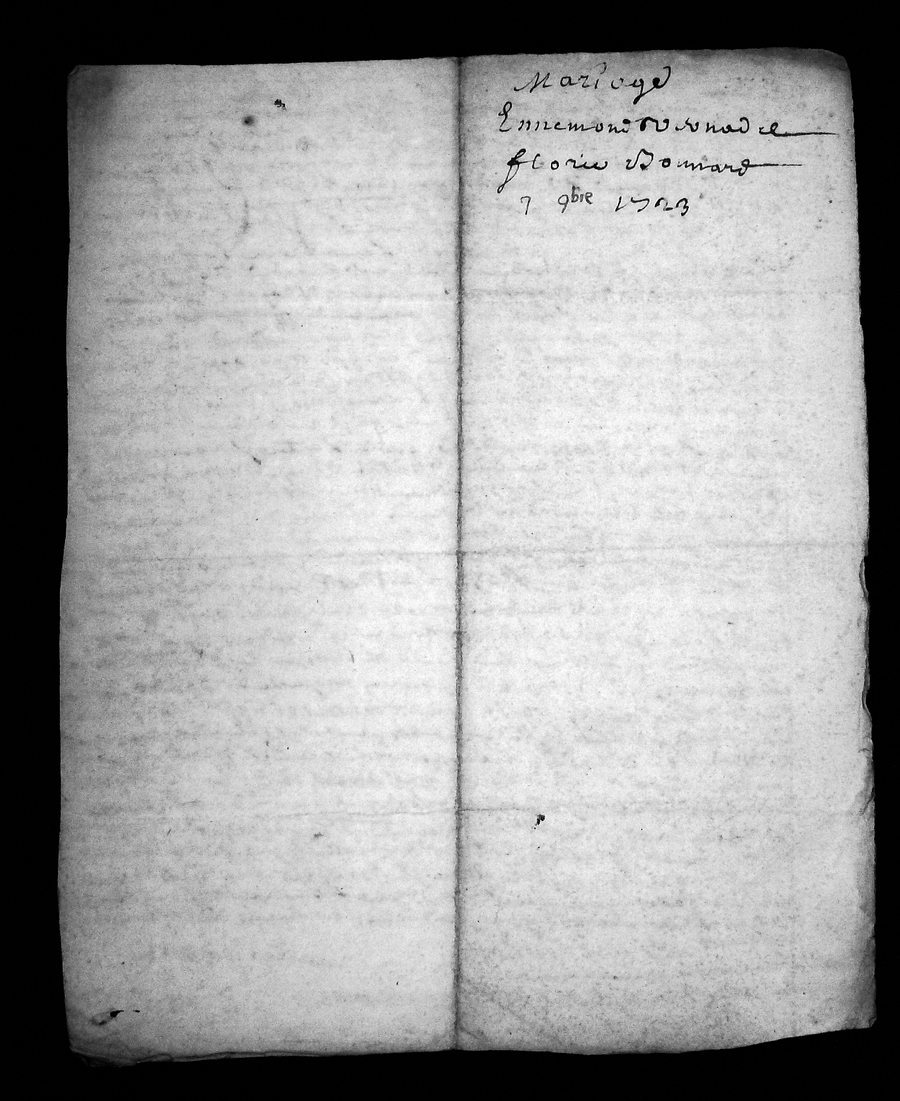 Mariage
Ennemond
florie Bonnard
7 9bre 1723